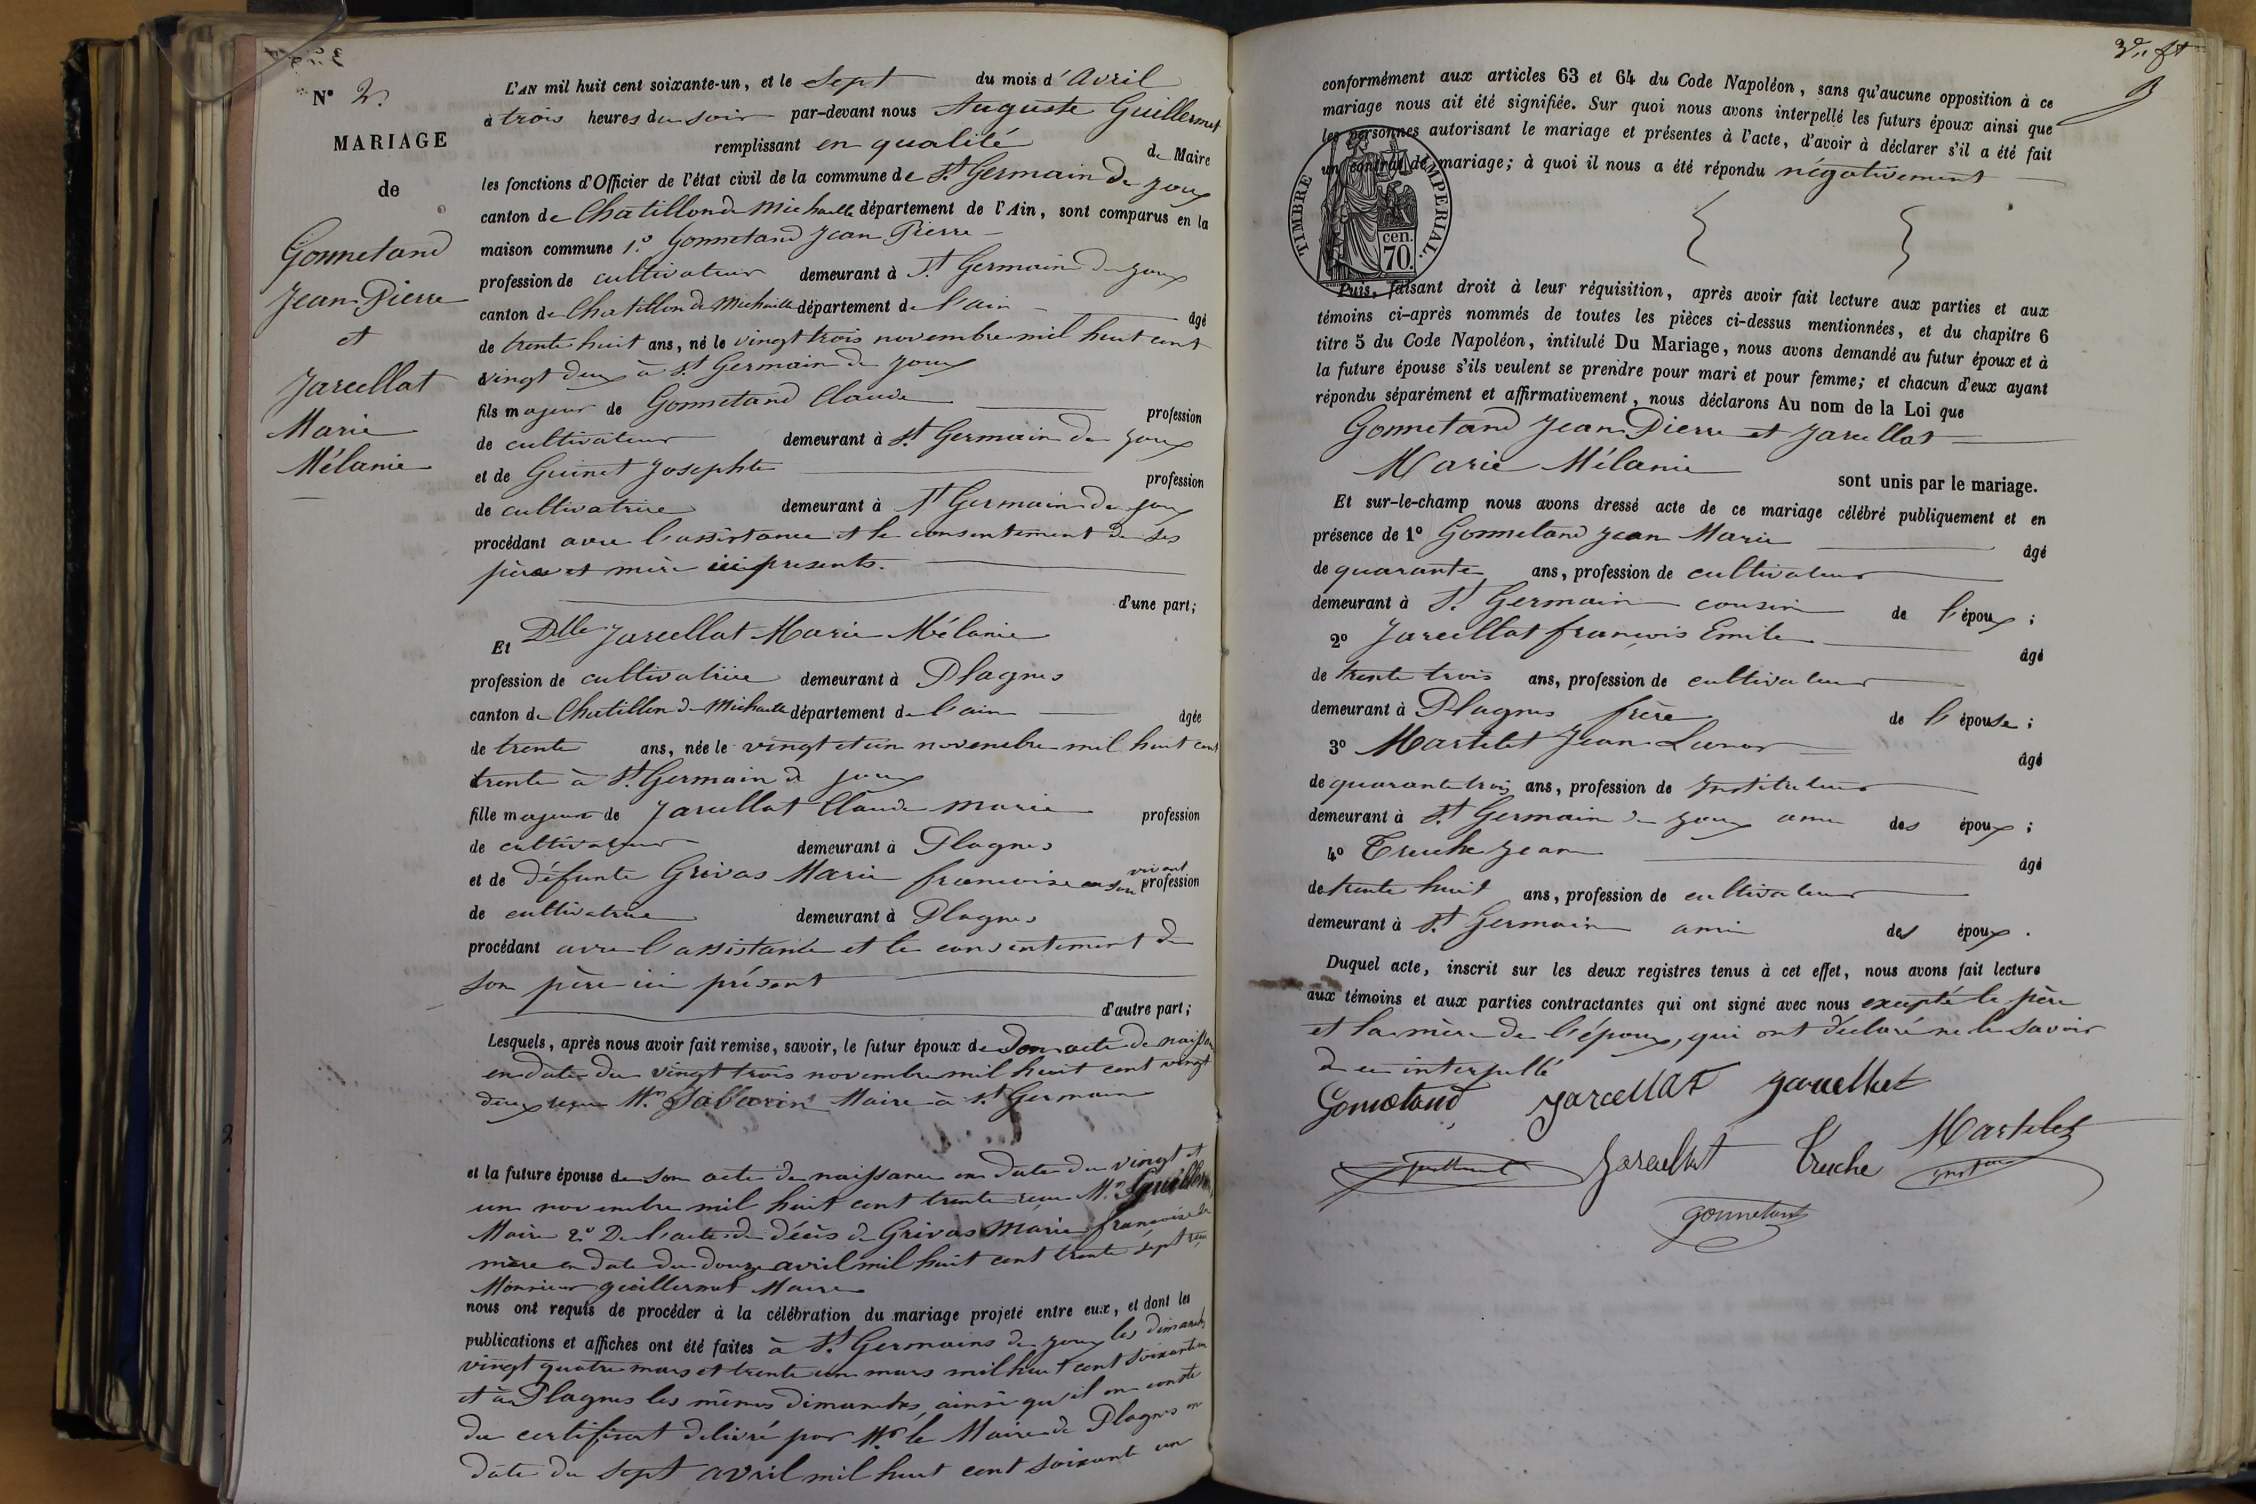 N° 2.
MARIAGE
de
Gonnetand
Jean Pierre
et
Jarcellat
Marie
Mélanie
L'AN mil huit cent soixante-un, et le Sept du mois d'Avril
à trois heures du soir par-devant nous Auguste Guillermet
remplissant en qualité de Maire
les fonctions d'Officier de l'état civil de la commune de St Germain de Joux
canton de Chatillon de Michaille département de l'Ain, sont comparus en la
maison commune 1.° Gonnetand Jean Pierre
profession de cultivateur demeurant à St Germain de Joux
canton de Chatillon de Michaille département de l'ain âgé
de trente huit ans, né le vingt trois novembre mil huit cent
vingt deux à St Germain de Joux
fils majeur de Gonnetand Claude profession
de cultivateur demeurant à St Germain de Joux
et de Guinet Josephte profession
de cultivatrice demeurant à St Germain de Joux
procédant avec l'assistance et le consentement de ses
père et mère ici presents.
d'une part;
Et Dlle Jarcellat Marie Mélanie
profession de cultivatrice demeurant à Plagnes
canton de Chatillon de Michaille département de l'ain âgée
de trente ans, née le vingt et un novembre mil huit cent
trente à St Germain de Joux
fille majeure de Jarcellat Claude Marie profession
de cultivateur demeurant à Plagnes
et de défunte Grivas Marie françoise en son vivant profession
de cultivatrice demeurant à Plagnes
procédant avec l'assistance et le consentement de
son père ici présent
d'autre part;
Lesquels, après nous avoir fait remise, savoir, le futur époux de Son acte de naissance
en date du vingt trois novembre mil huit cent vingt
deux reçu Mr Savarin Maire à St Germain
et la future épouse de son acte de naissance en date du vingt et
un novembre mil huit cent trente reçu Mr
Maire 2° De l'acte de décès de Grivas Marie françoise sa
mère en date du douze avril mil huit cent trente sept reçu
Monsieur guillermet Maire
nous ont requis de procéder à la célébration du mariage projeté entre eux, et dont les
publications et affiches ont été faites à St Germains de Joux les dimanches
vingt quatre mars et trente un mars mil huit cent soixante un
et à Plagnes les mêmes dimanches, ainsi qu'il en conste
du certificat delivré par Mr le Maire de Plagnes en
date du sept avril mil huit cent soixante un
conformément aux articles 63 et 64 du Code Napoléon, sans qu'aucune opposition à ce
mariage nous ait été signifiée. Sur quoi nous avons interpellé les futurs époux ainsi que
les personnes autorisant le mariage et présentes à l'acte, d'avoir à déclarer s'il a été fait
un contrat de mariage; à quoi il nous a été répondu négativement
TIMBRE IMPERIAL.
cen.
70.
Puis, faisant droit à leur réquisition, après avoir fait lecture aux parties et aux
témoins ci-après nommés de toutes les pièces ci-dessus mentionnées, et du chapitre 6
titre 5 du Code Napoléon, intitulé Du Mariage, nous avons demandé au futur époux et à
la future épouse s'ils veulent se prendre pour mari et pour femme; et chacun d'eux ayant
répondu séparément et affirmativement, nous déclarons Au nom de la Loi que
Gonnetand Jean Pierre et Jarcellat
Marie Mélanie
sont unis par le mariage.
Et sur-le-champ nous avons dressé acte de ce mariage célébré publiquement et en
présence de 1° Gonnetand Jean Marie âgé
de quarante ans, profession de cultivateur
demeurant à St Germain cousin de l'époux;
2° Jarcellat françois Emile âgé
de trente trois ans, profession de cultivateur
demeurant à Plagnes frère de l'épouse;
3° Martelet Jean âgé
de quarante trois ans, profession de Instituteur
demeurant à St Germain de Joux ami des époux;
4° Truche Jean âgé
de trente huit ans, profession de cultivateur
demeurant à St Germain ami des époux.
Duquel acte, inscrit sur les deux registres tenus à cet effet, nous avons fait lecture
aux témoins et aux parties contractantes qui ont signé avec nous excepté le père
et la mère de l'époux, qui ont déclaré ne le savoir
de ce interpellé
Gonnetand Jarcellat Jarcellat
Jarcellat Truche Martelet
gonnetant